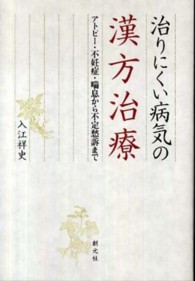 治りにくい病気の
漢方治療
アトピー・不妊症・喘息から不定愁訴まで
入江祥史
創元社